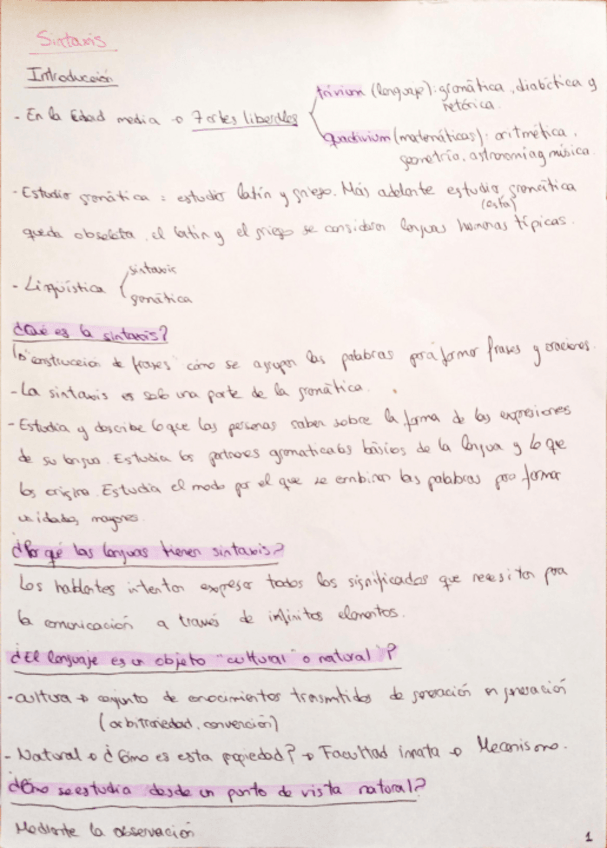 Sintaxis
Introducción
- En la Edad media → 7 artes liberales
trivium (lenguaje): gramática, dialéctica y
retórica.
quadrivium (matemáticas): aritmética,
geometría, astronomía y música.
- Estudiar gramática = estudiar latín y griego. Más adelante estudiar gramática
(esta)
queda obsoleta, el latín y el griego se consideran lenguas humanas típicas.
- Lingüística
sintaxis
gramática
¿Qué es la sintaxis?
"construcción de frases" cómo se agrupan las palabras para formar frases y oraciones.
- La sintaxis es solo una parte de la gramática.
- Estudia y describe lo que las personas saben sobre la forma de las expresiones
de su lengua. Estudia los patrones gramaticales básicos de la lengua y lo que
los origina. Estudia el modo por el que se combinan las palabras para formar
unidades mayores.
¿Por qué las lenguas tienen sintaxis?
Los hablantes intentan expresar todos los significados que necesitan para
la comunicación a través de infinitos elementos.
¿El lenguaje es un objeto "cultural" o natural?
- cultura → conjunto de conocimientos transmitidos de generación en generación
(arbitrariedad, convención)
- Natural → ¿Cómo es esta propiedad? → Facultad innata → Mecanismo.
¿Cómo se estudia desde un punto de vista natural?
Mediante la observación
1